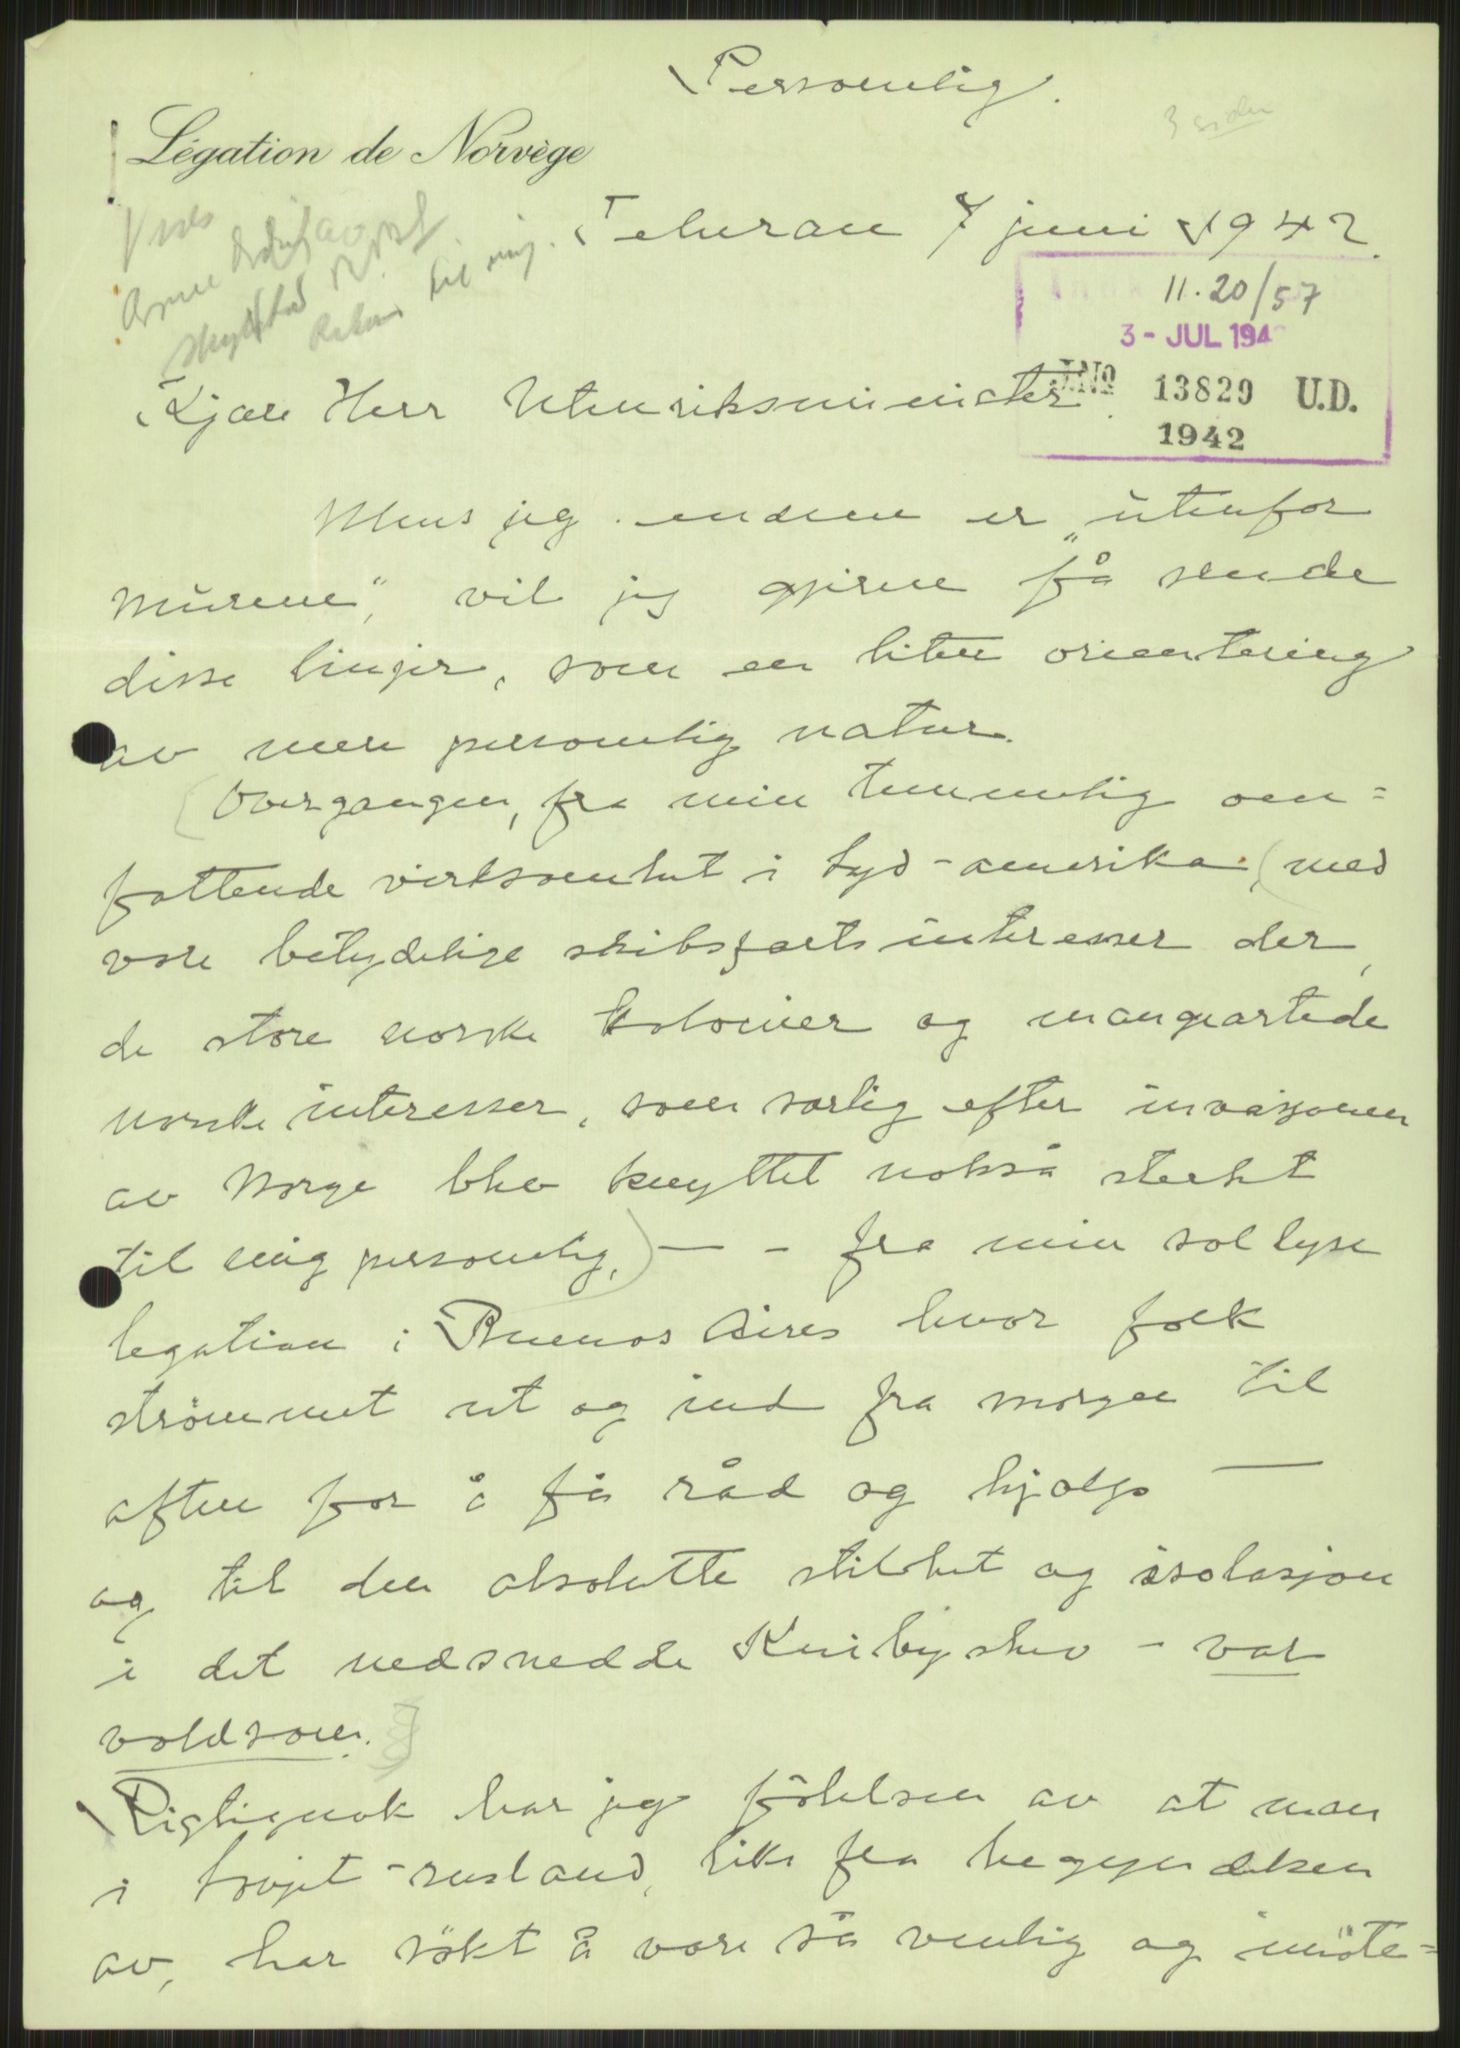 Personlig.
3 sider
Légation de Norvège
Teheran 7 juni 1942.
11.20/57
3 - JUL 194
J.No 13829 U.D.
1942
Kjære Herr Utenriksminister.
Mens jeg endnu er "utenfor
murene", vil jeg gjerne få sende
disse linjer, som en liten orientering
av mere personlig natur.
(Overgangen, fra min temmelig om=
fattende virksomhet i Syd-Amerika, (med
våre betydelige skibsfartsinteresser der,
de store norske kolonier og mangeartede
norske interesser, som særlig efter invasjonen
av Norge blev knyttet nokså sterkt
til mig personlig,) — - fra min sollyse
legation i Buenos Aires hvor folk
strömmet ut og ind fra morgen til
aften for å få råd og hjælp —
og til den absolutte stilhet og isolasjon
i det nedsnedde Kuibyshev - var
voldsom.]
Rigtignok har jeg fölelsen av at man
i Sovjet-rusland, like fra begyndelsen
av, har sökt å være så venlig og imöte=